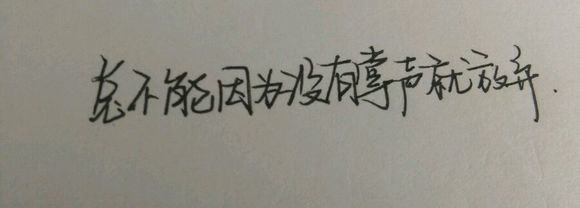 总不能因为没有掌声就放弃.